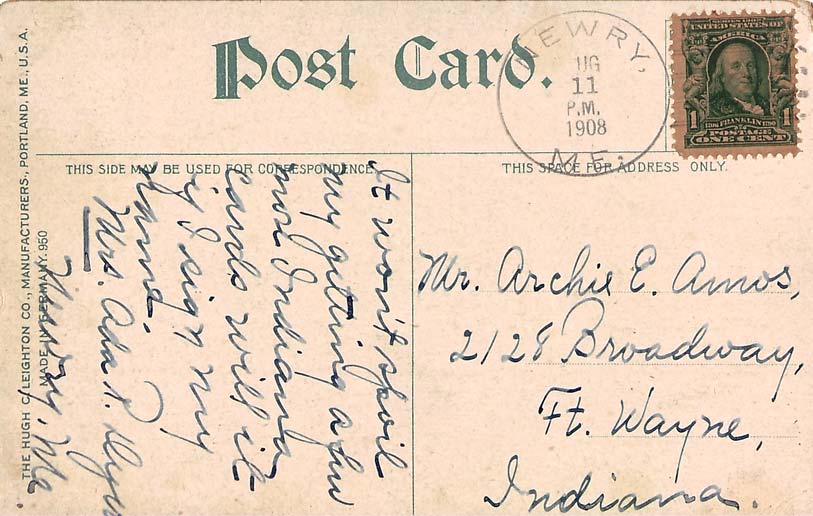 Post Card.
NEWRY,
UG
11
P.M.
1908
ME.
SERIES 1902
UNITED STATES OF
AMERICA
1 FRANKLIN 1
POSTAGE
ONE CENT
THIS SIDE MAY BE USED FOR CORRESPONDENCE.
THIS SPACE FOR ADDRESS ONLY.
It won't spoil
my getting a few
more Indiana
cards will it
if I sign my
name.
Mrs. Ada P.
Newry, Me
Mr. Archie E. Amos,
2128 Broadway,
Ft. Wayne,
Indiana.
THE HUGH C. LEIGHTON CO., MANUFACTURERS, PORTLAND, ME., U.S.A.
MADE IN GERMANY. 950